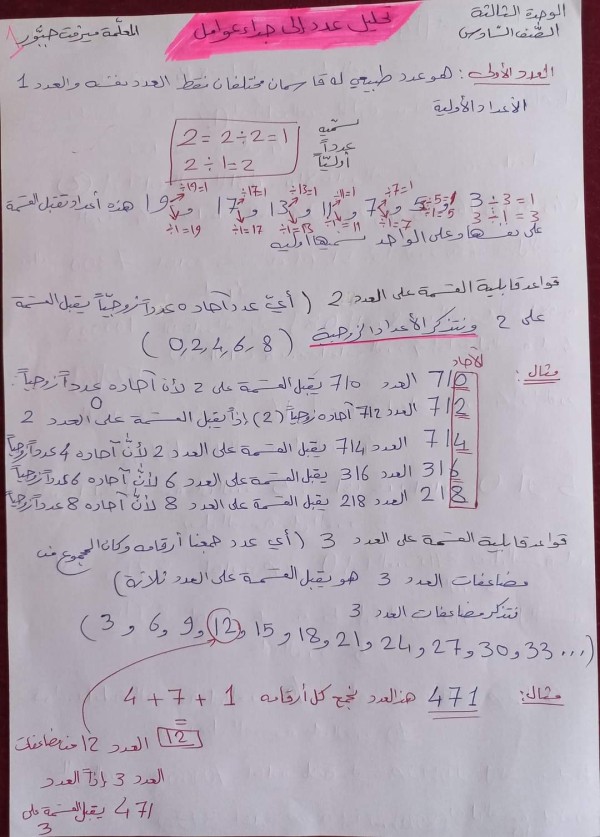 الوحدة الثالثة
الصّف السّادس
تحليل عدد إلى جداء عوامل
المعلّمة ميرفت جبّور
العدد الأولي : هو عدد طبيعي له قاسمان مختلفان فقط العدد نفسه والعدد 1
الأعداد الأولية
2 = 2 ÷ 2 = 1
2 ÷ 1 = 2
نسمّيه
عدداً
أوليّاً
3 ÷ 3 = 1
3 ÷ 1 = 3
5 ÷5=1 ÷1=5 و 7 ÷7=1 ÷1=7 و 11 ÷11=1 ÷1=11 و 13 ÷13=1 ÷1=13 و 17 ÷17=1 ÷1=17 و 19 ÷19=1 ÷1=19 هذه أعداد تقبل القسمة
على نفسها وعلى الواحد نسميها أولية
قواعد قابلية القسمة على العدد 2 ( أيّ عدد آحاده عدداً زوجيّاً يقبل القسمة
على 2 ونتذكر الأعداد الزوجية ( 0,2,4,6,8 )
مثال :
الآحاد
710 العدد 710 يقبل القسمة على 2 لأن آحاده عدداً زوجياً.
0
712 العدد 712 آحاده زوجياً (2) إذاً يقبل القسمة على العدد 2
714 العدد 714 يقبل القسمة على العدد 2 لأنّ آحاده 4 عدداً زوجياً
316 العدد 316 يقبل القسمة على العدد 6 لأنّ آحاده 6 عدداً زوجياً
218 العدد 218 يقبل القسمة على العدد 8 لأنّ آحاده 8 عدداً زوجياً
قواعد قابلية القسمة على العدد 3 ( أي عدد جمعنا أرقامه وكان المجموع من
مضاعفات العدد 3 هو يقبل القسمة على العدد ثلاثة )
نتذكر مضاعفات العدد 3
( 3 و 6 و 9 و 12 و 15 و 18 و 21 و 24 و 27 و 30 و 33 و ... )
مثال : 471 هذا العدد نجمع كل أرقامه 4 + 7 + 1
=
12 العدد 12 من مضاعفات
العدد 3 إذاً العدد
471 يقبل القسمة على
3